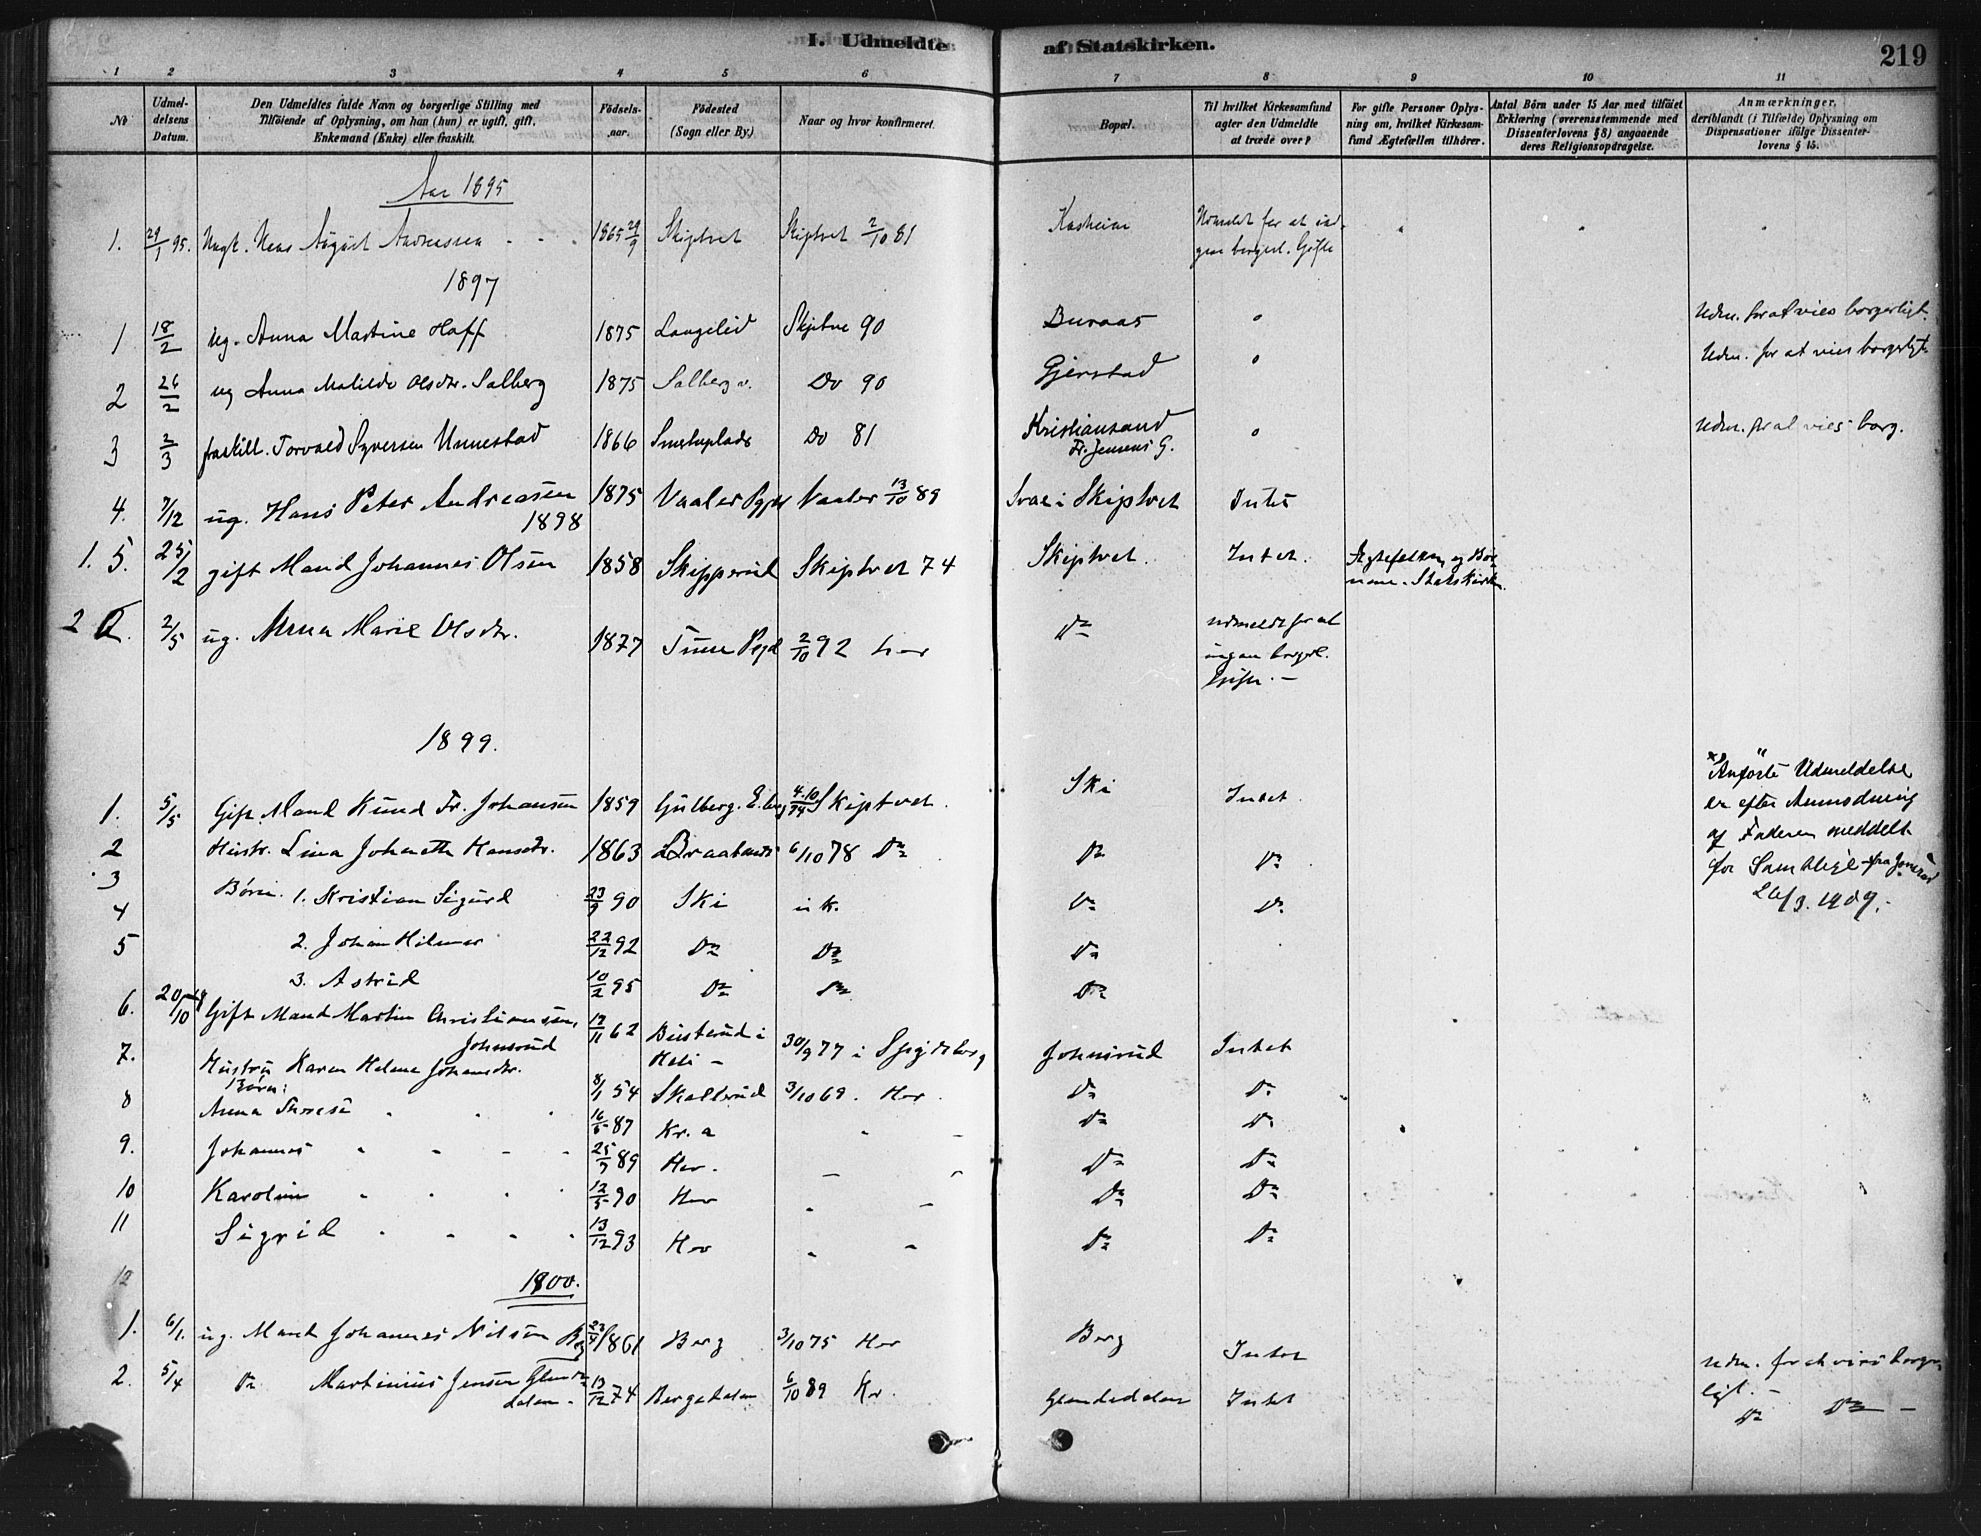 I. Udmeldte af Statskirken.
219
1 2 3 4 5 6 7 8 9 10 11
No
Udmel-
delsens
Datum.
Den Udmeldtes fulde Navn og borgerlige Stilling med
Tilføiende af Oplysning, om han (hun) er ugift, gift,
Enkemand (Enke) eller fraskilt.
Fødsels-
aar.
Fødested
(Sogn eller By.)
Naar og hvor konfirmeret.
Bopæl.
Til hvilket Kirkesamfund
agter den Udmeldte
at træde over?
For gifte Personer Oplys-
ning om, hvilket Kirkesam-
fund Ægtefællen tilhører.
Antal Børn under 15 Aar med tilføiet
Erklæring (overensstemmende med
Dissenterlovens § 8) angaaende
deres Religionsopdragelse.
Anmærkninger,
deriblandt (i Tilfælde) Oplysning om
Dispensationer ifølge Dissenter-
lovens § 15.
Aar 1895
1. 29/1 95. Ungk. August Andreassen 1865 29/9 Skiptvet Skiptvet 2/10 81 Udmeldt for at ind-
borgerl. Gifte
1897
1 18/2 ug. Anna Martine Haff 1875 Langelid Skiptve 90 Buraas Udm. for at vies borgerligt.
2 26/2 ug Anna Matilde Olsdtr. Salberg 1875 Salberg v. Do 90 Gjerstad Udm. for at vies borgerligt.
3 2/3 fraskilt. Torvald Syversen Unnestad 1866 Do 81 Kristiansand Udm. for at vies borg.
Fr. Jensens G.
4. 7/12 ug. Hans Peter Andreasen 1875 Vaaler Pgjld Vaaler 13/10 89 Svae i Skiptvet Intet
1898
1. 5. 25/2 gift Mand Johannes Olsen 1858 Skipperud Skiptvet 74 Skiptvet. Intet. Ægtefællen og Bør
nene - Statskirk.
2 2/5 ug. Anna Marie Olsdtr. 1877 Tune Pgjd 2/10 92 her Do udmeldt for at
indgaa borgerl.
Gifte. -
1899.
1. 5/5 Gift Mand Knud Fr. Johansen 1859 Gulberg. 4.10/74 Skiptvet. Ski Intet.
2 Hustr. Lina Johanette Hansdtr. 1863 Braatenes 6/10 78 Do Do Do
3 Børn. 1. Kristian Sigurd 23/9 90 Ski uk. Do Do
4 2. Johan Hilmar 22/12 92 Do Do Do
5 3. Astrid 10/2 95 Do Do Do
x) Anførte Udmeldelse
er efter Anmodning
af Faderen meddelt
for Samtlige fra
1909.
6. 20/10 Gift Mand Martin Christiansen, 17/11 62 Busterud i 30/9 77 i Spydeberg Johnsrud Intet
Johnsrud Heli -
7. Hustru Karen Helene Johansdtr. 8/1 54 Skallerud 3/10 69. Her. Do Do
Børn:
8 Anna 16/5 87 Kr. a Do Do
9. Johannes 25/7 89 Her. Do Do
10 Karoline 12/5 90 Her Do Do
11 Sigrid 13/12 93 Her Do Do
12
1800.
1. 6/1. ug. Mand Johannes Nilsen Berg 23/4 1861 Berg 3/10 75 Her Berg Intet Udm. for at vies borger-
ligt. -
2. 5/4 Do Martinius Jensen 13/12 74 Bergedalen 6/10 89 Intet Do Do -